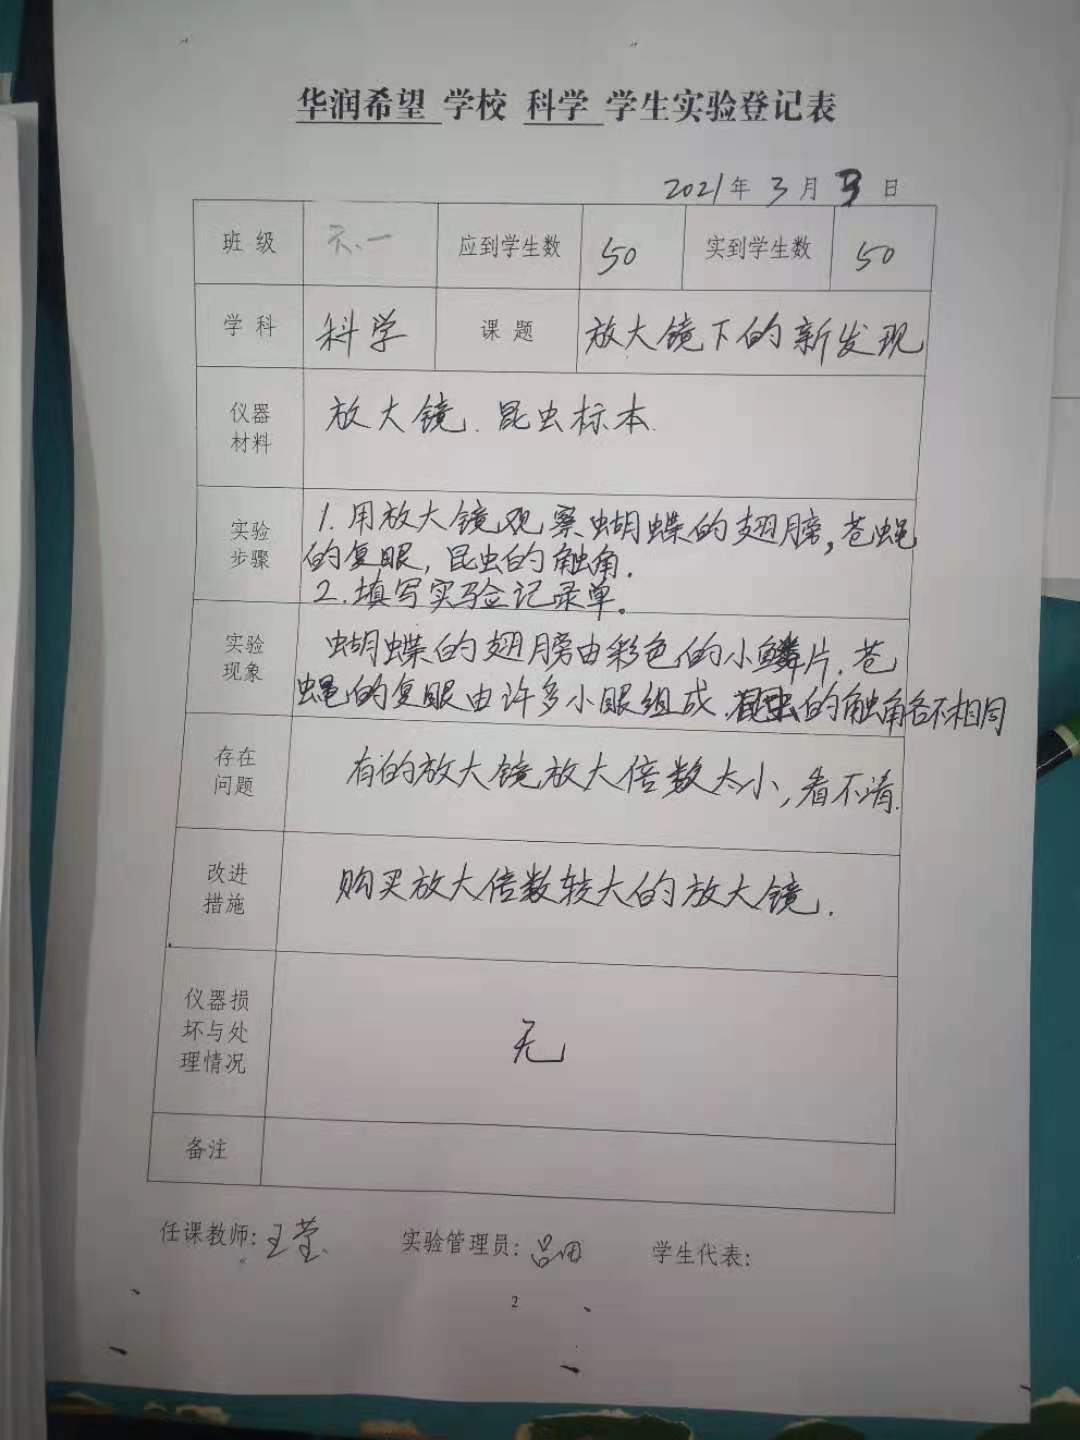 华润希望 学校 科学 学生实验登记表
2021年 3月 9日
班 级 六、一 应到学生数 50 实到学生数 50
学 科 科学 课 题 放大镜下的新发现
仪器
材料
放大镜. 昆虫标本.
实验
步骤
1.用放大镜观察蝴蝶的翅膀,苍蝇
的复眼,昆虫的触角.
2.填写实验记录单。
实验
现象
蝴蝶的翅膀由彩色的小鳞片.苍
蝇的复眼由许多小眼组成.昆虫的触角各不相同
存在
问题
有的放大镜放大倍数太小,看不清.
改进
措施
购买放大倍数较大的放大镜.
仪器损
坏与处
理情况
无
备注
任课教师:王莹 实验管理员: 学生代表:
2